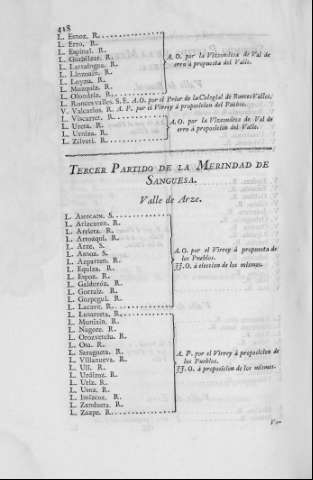 418
L. Esnoz. R.
L. Erro. R.
L. Espinal. R.
L. Gurbizar. R.
L. Larraingoa. R.
L. Linzoain. R.
L. Loyzu. R.
L. Mezquiz. R.
L. Olondriz. R.
A. O. por la Vizcondesa de Val de
erro á propuesta del Valle.
L. Roncesvalles. S. E. A. O. por el Prior de la Colegial de Roncesvalles.
V. Valcarlos. R. A. P. por el Virrey á proposicion del Pueblo.
L. Viscarret. R.
L. Ureta. R.
L. Urniza. R.
L. Zilveti. R.
A. O. por la Vizcondesa de Val de
erro á proposicion del Valle.
TERCER PARTIDO DE LA MERINDAD DE
SANGUESA.
Valle de Arze.
L. Amocain. S.
L. Arizcuren. R.
L. Arrieta. R.
L. Artozqui. R.
L. Arze. S.
L. Asnoz. S.
L. Azparren. R.
L. Equiza. R.
L. Espoz. R.
L. Galdúroz. R.
L. Gorraiz. R.
L. Gurpegui. R.
L. Lacave. R.
A. O. por el Virrey á propuesta de
los Pueblos.
JJ. O. á eleccion de los mismos.
L. Lusarreta. R.
L. Muniain. R.
L. Nagore. R.
L. Orozvetelu. R.
L. Osa. R.
L. Saragueta. R.
L. Villanueva. R.
L. Uli. R.
L. Urdiroz. R.
L. Uriz. R.
L. Usoz. R.
L. Imizcoz. R.
L. Zandueta. R.
L. Zazpe. R.
A. P. por el Virrey á proposicion de
los Pueblos.
JJ. O. á proposicion de los mismos.